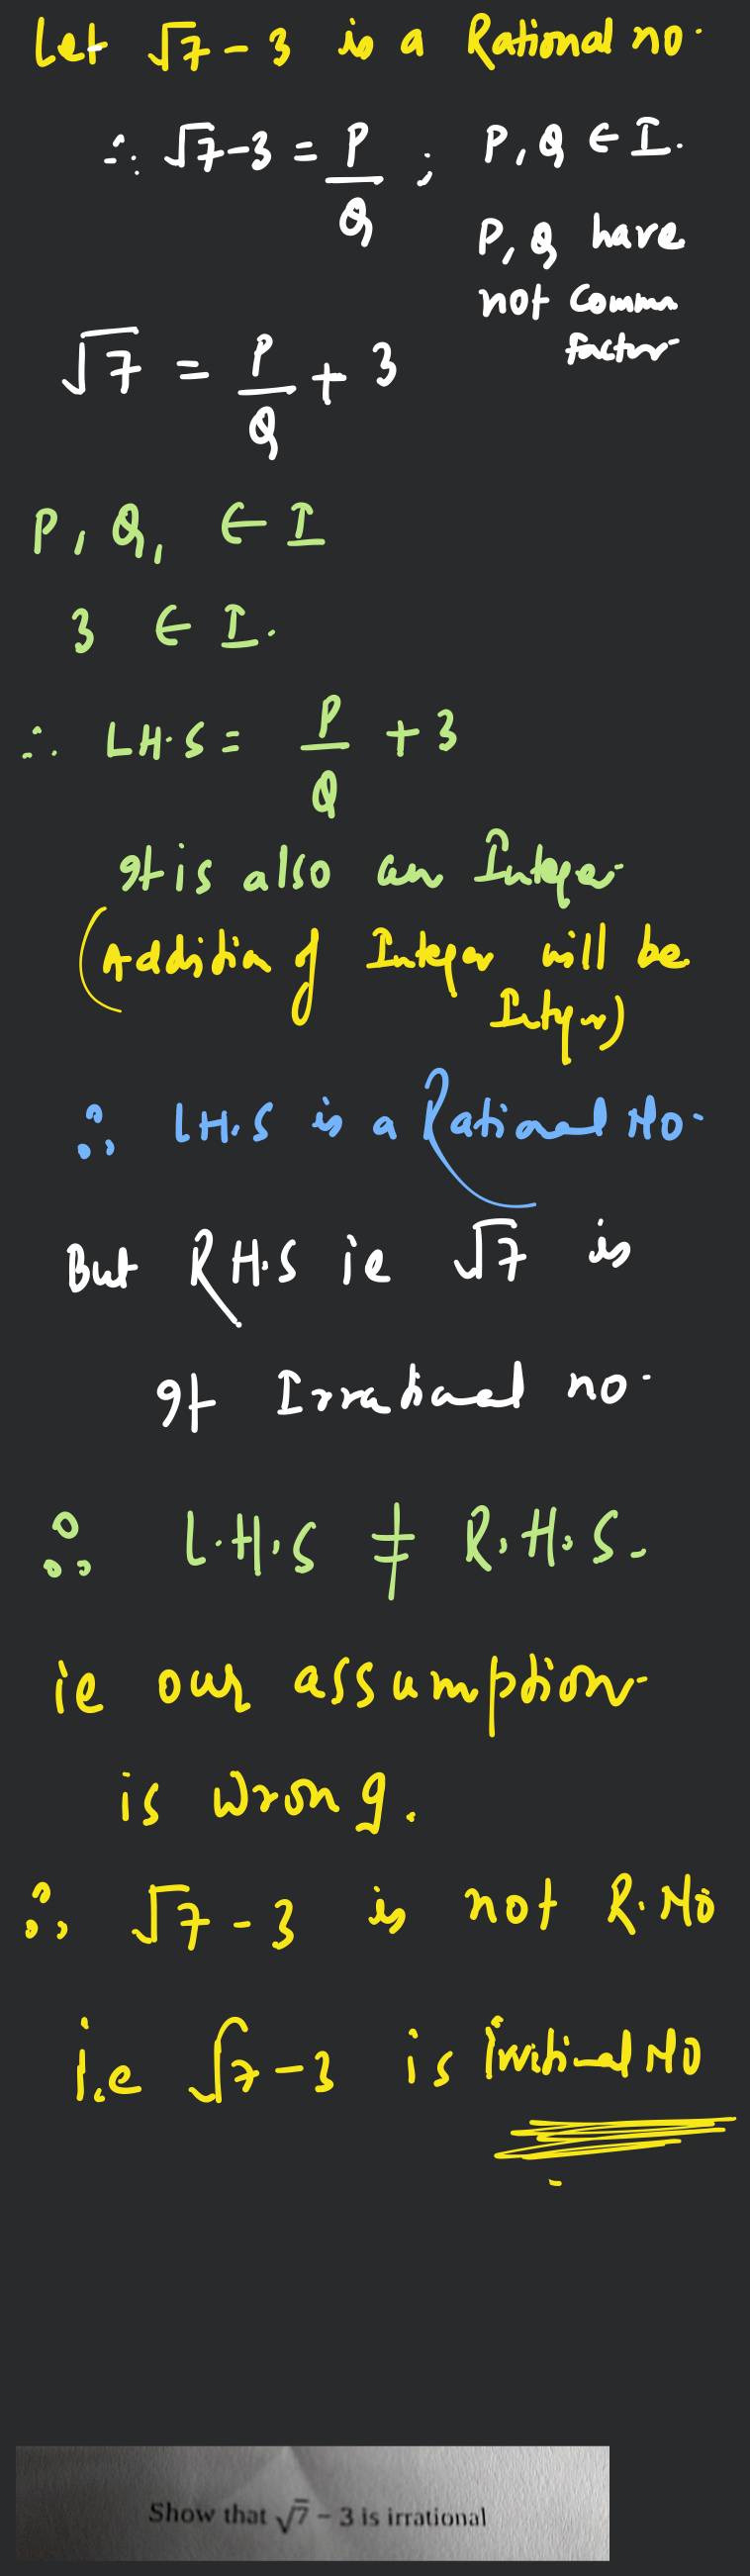 Let √7 - 3 is a Rational no.
∴ √7-3 = P/Q ; P, Q ∈ I.
P, Q have
not Commn
factor
√7 = P/Q + 3
P, Q, ∈ I
3 ∈ I.
∴ LH.S = P/Q + 3
It is also an Integer
(Addition of Integer will be
Integer)
∴ LH.S is a Rational No.
But RH.S ie √7 is
It Irrational no.
∴ L.H.S ≠ R.H.S.
ie our assumption
is wrong.
∴ √7 - 3 is not R.No
i.e √7-3 is irrational No
Show that √7 - 3 is irrational